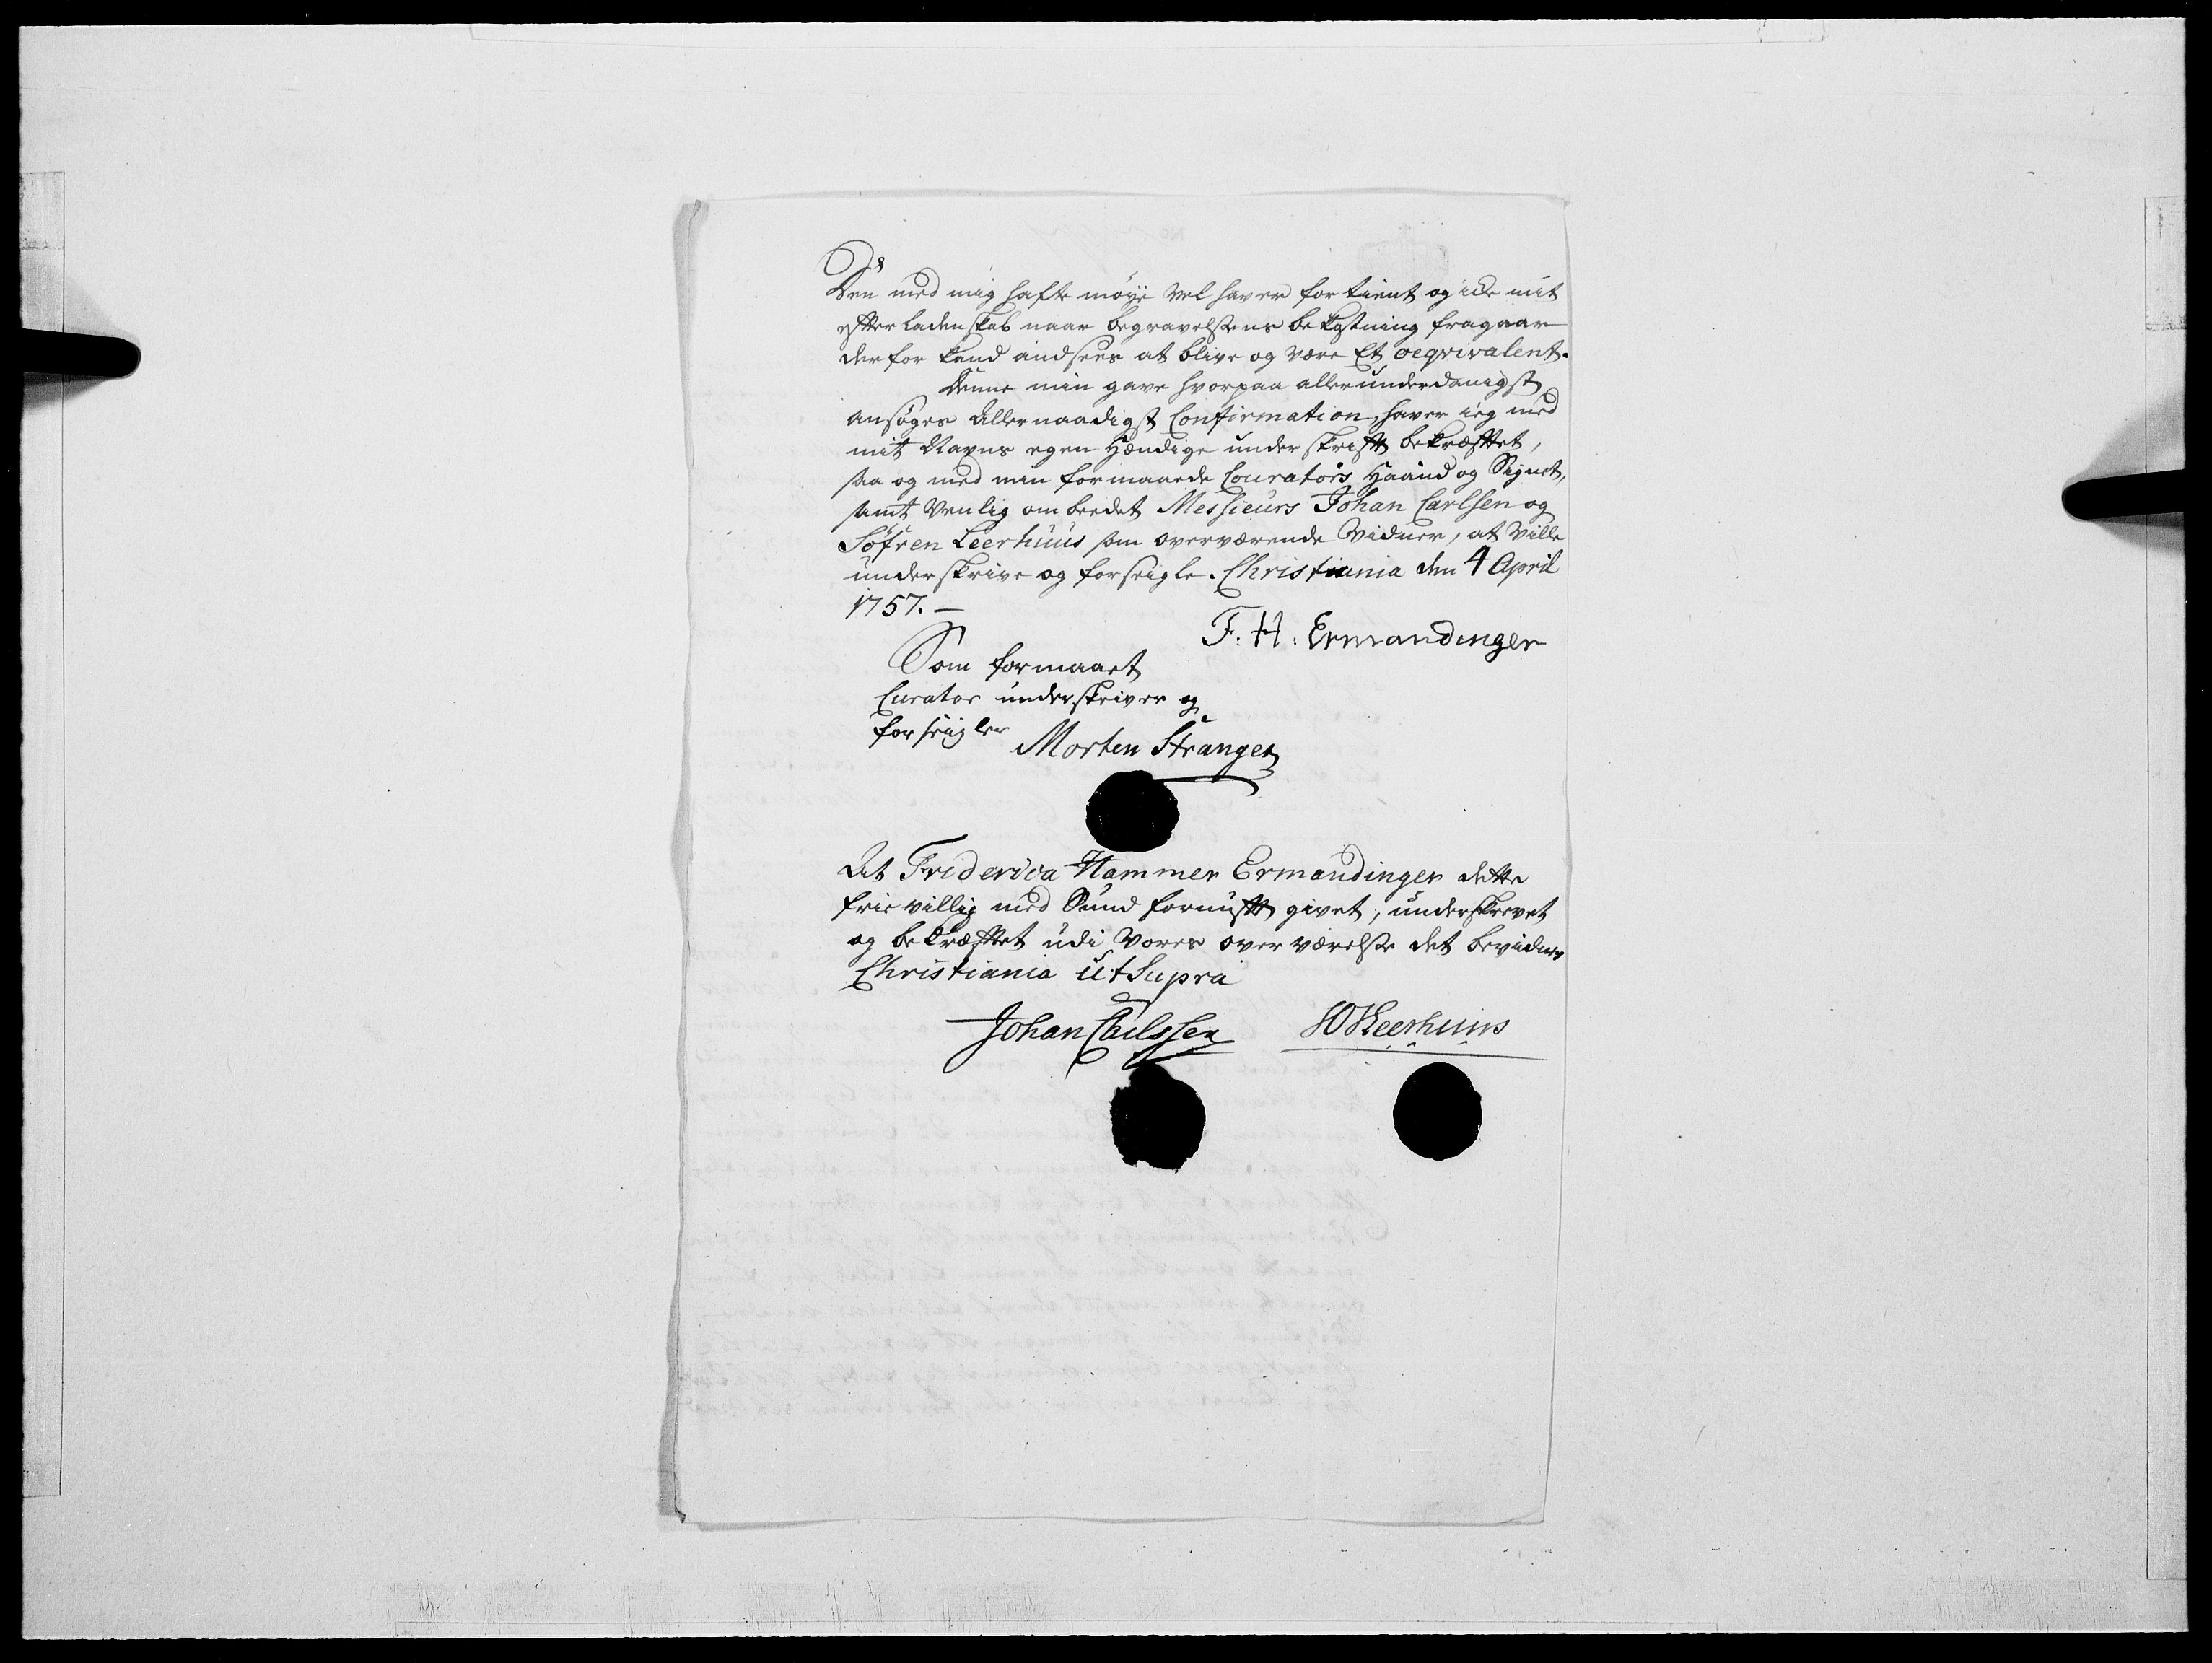 Den med mig hafte møye vel haver fortient og icke mit
efterladenskab naar begravelsens bekostning fragaar
derfor kand andsees at blive og være Et œqvivalent.
Denne min gave hvorpaa allerunderdanigst
ansøges Allernaadigst Confirmation, haver ieg med
mit Navns egen Hændige underskrift bekræfftet,
saa og med min formaaede Courators Haand og Signet,
samt venlig ombeedet Messieurs Johan Carlsen og
Søfren Leerhuus som overværende Vidner, at ville
underskrive og forseigle. Christiania den 4 April
1757. —
F: H: Ermandinger
Som formaaet
Curator underskriver og
forseigler
Morten Stranger
At Friderica Hammer Ermandinger dette
frie villig med Sund fornufft givet, underskrevet
og bekræfftet udi vores overværelse det bevidner
Christiania ut Supra
Johan Carlssen SLeerhuus